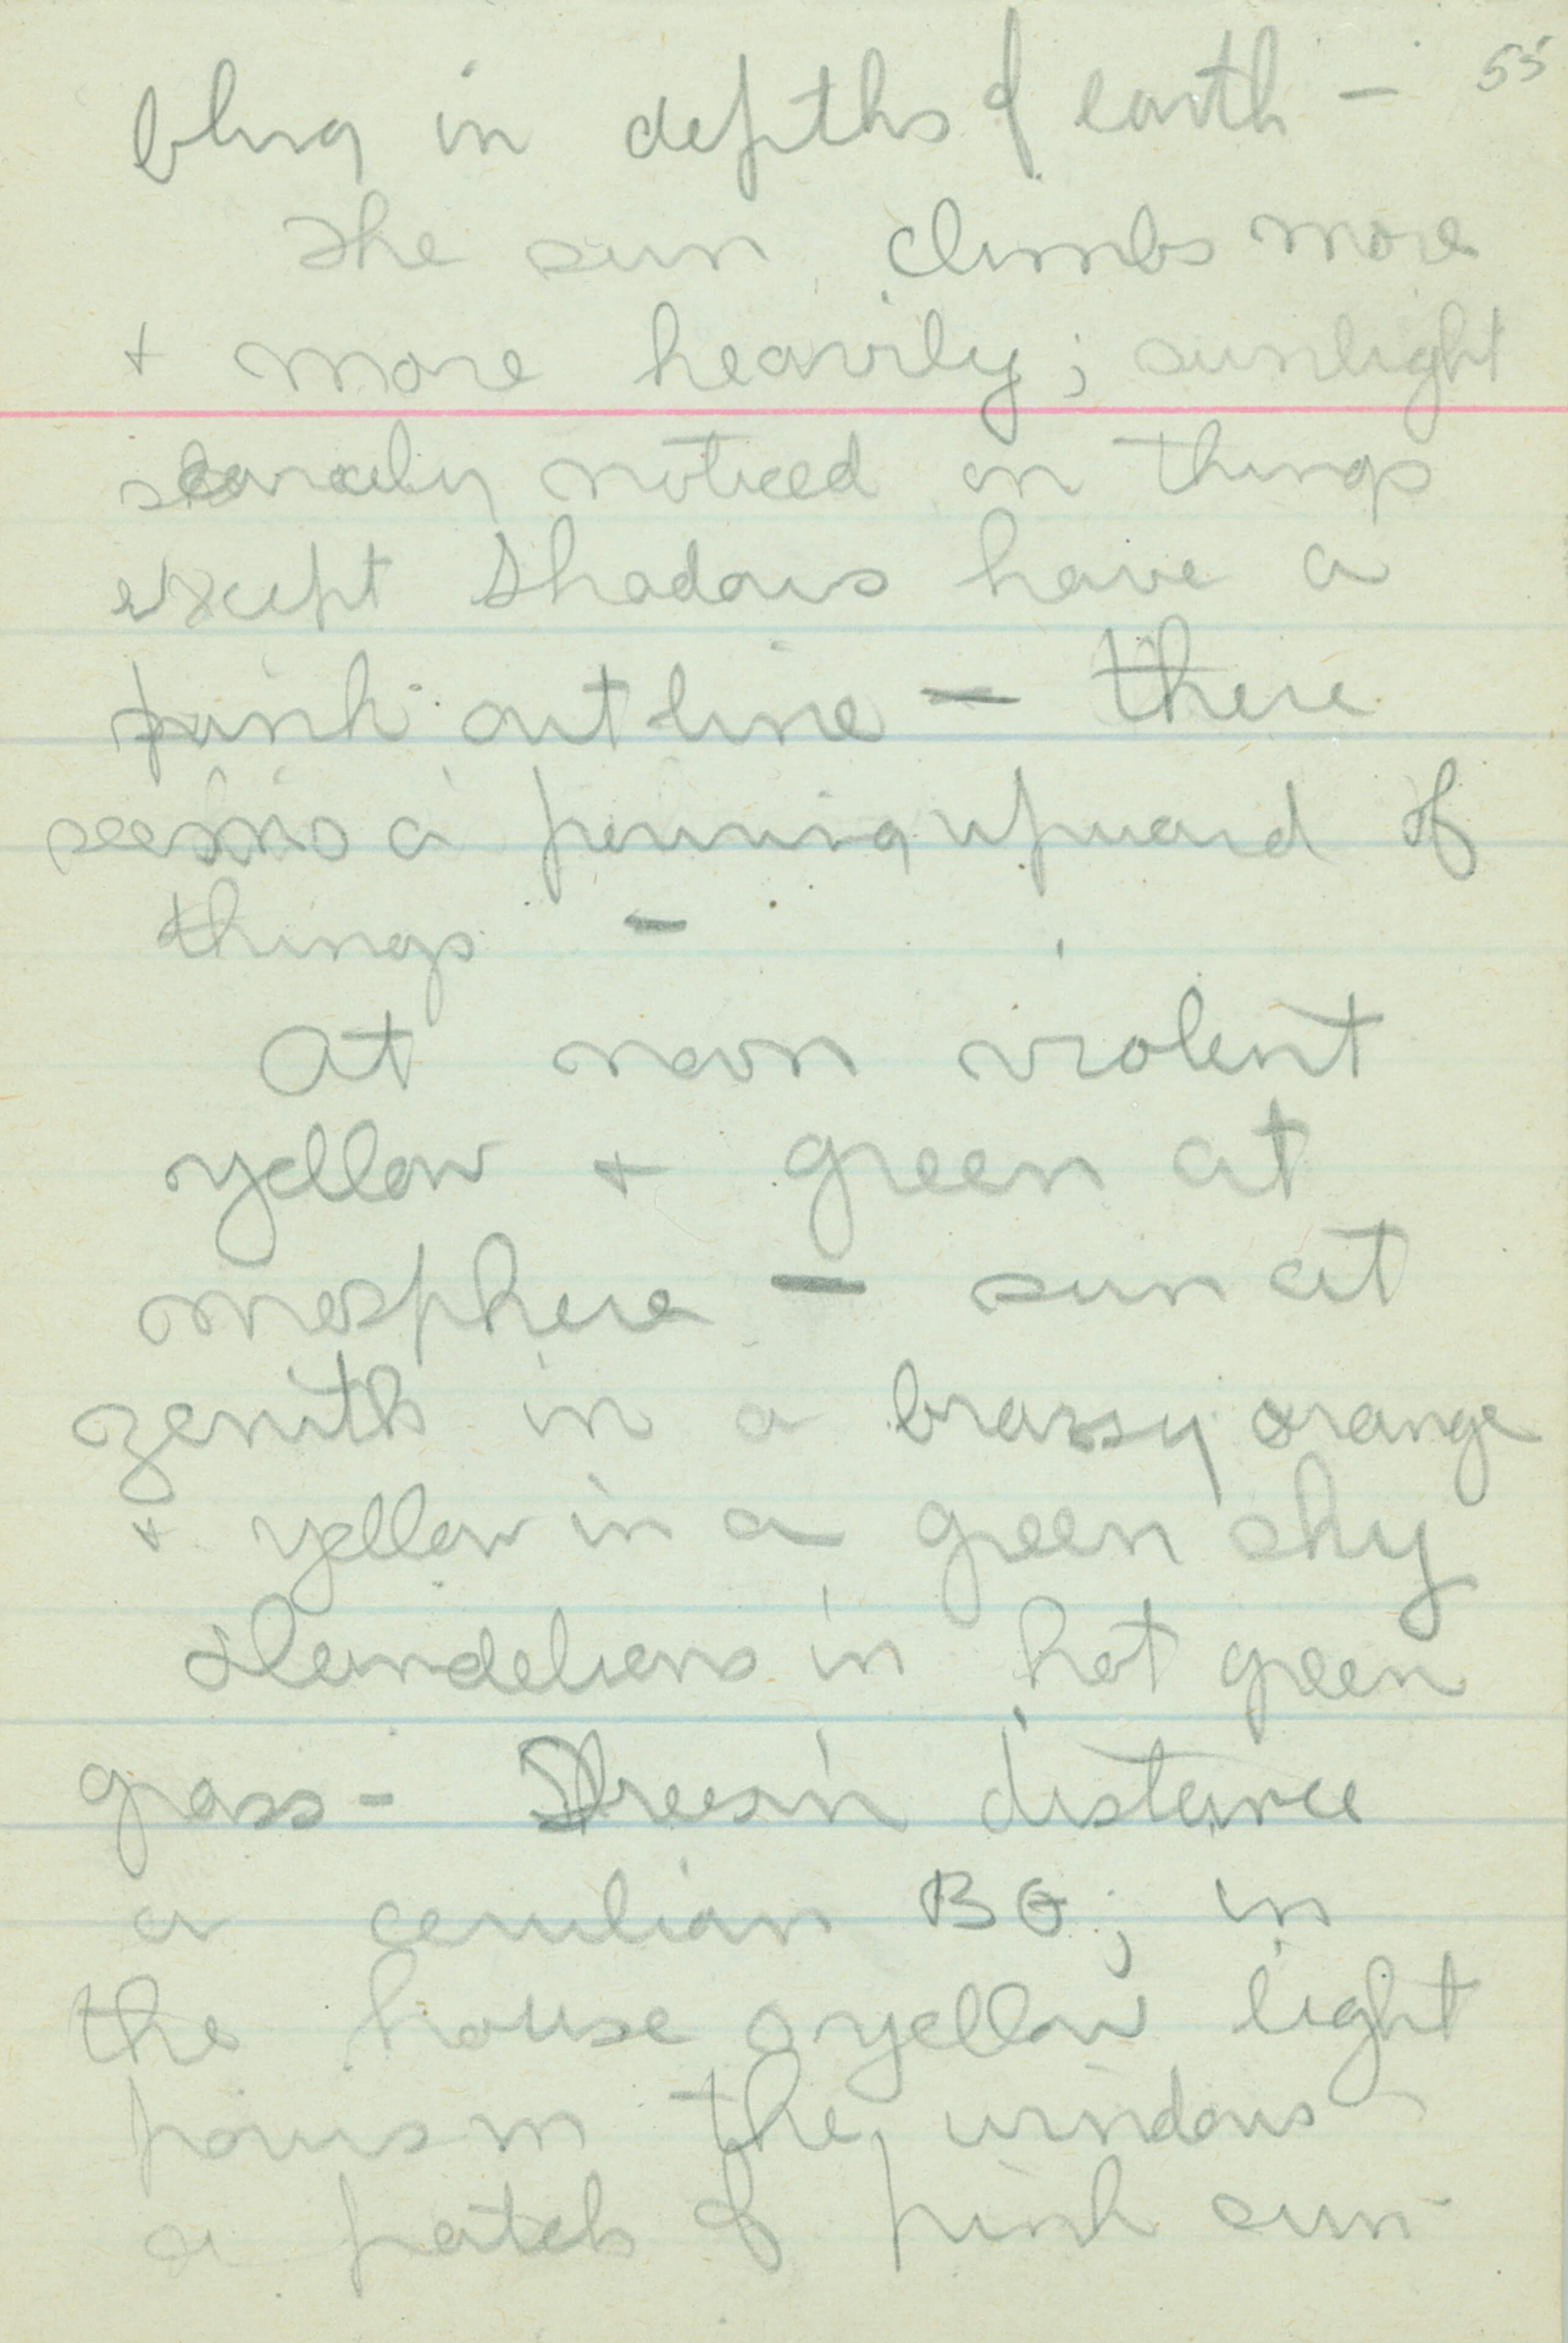 55
bling in depths of earth —
The sun climbs more
+ more heavily; sunlight
scarcely noticed on things
except shadows have a
pink outline — there
seems a running upward of
things —
At noon violent
yellow + green at
mosphere — sun at
zenith in a brassy orange
+ yellow in a green sky
Dandelions in hot green
grass - Trees in distance
a cerulian BG; in
the house a yellow light
pours in the windows -
a patch of pink sun-